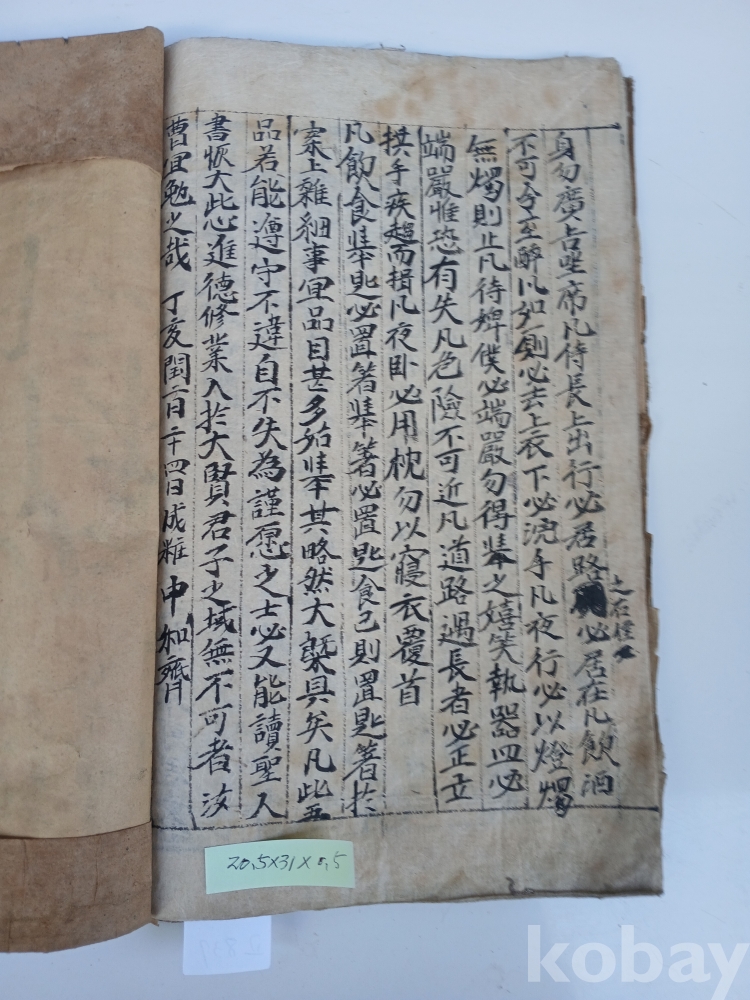 身勿廣占坐席凡侍長上出行必居路必居在凡飮酒
之右住
不可令至醉凡如厠必去上衣下必浣手凡夜行必以燈燭
無燭則止凡待婢僕必端嚴勿得與之嬉笑執器皿必
端嚴惟恐有失凡危險不可近凡道路遇長者必正立
拱手疾趨而揖凡夜卧必用枕勿以寢衣覆首
凡飮食擧匙必置箸擧箸必置匙食已則置匙箸於
案上雜細事宜品目甚多姑擧其略然大槩具矣凡此五
品若能遵守不違自不失為謹愿之士必又能讀聖人
書恢大此心進德修業入於大賢君子之域無不可者汝
曹宜勉之哉 丁亥閏二月二十四日成粧 中和齊
20,5X31X0,5
kobay